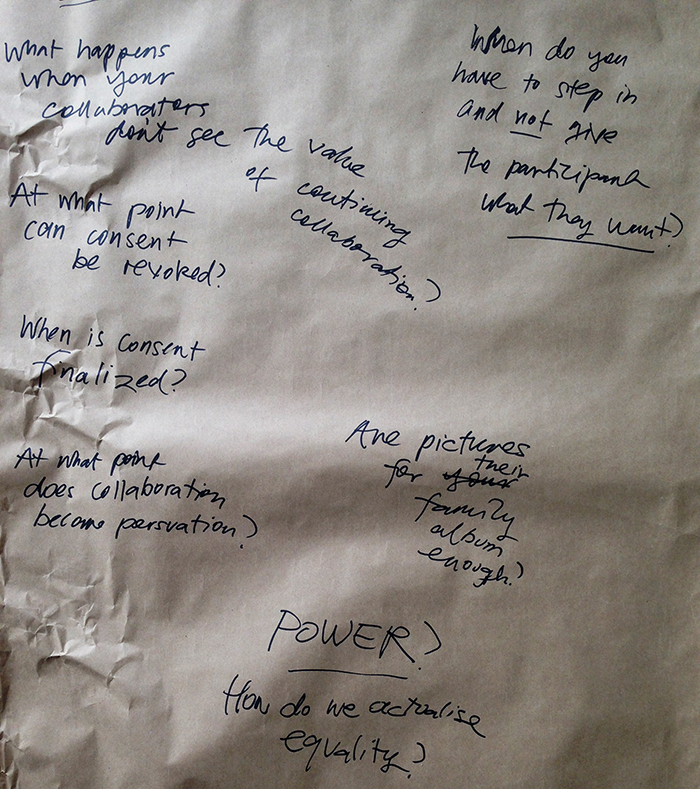 What happens
when your
collaborators
don't see the value
of continuing
collaboration?
When do you
have to step in
and not give
the participant
what they want?
At what point
can consent
be revoked?
When is consent
finalized?
At what point
does collaboration
become persuation?
Are pictures
for your their
family
album
enough?
POWER?
How do we actualise
equality?